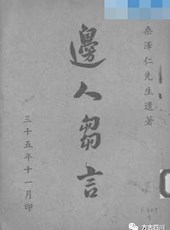 桑澤仁先生遺著
邊人芻言
三十五年十一月印
方志四川